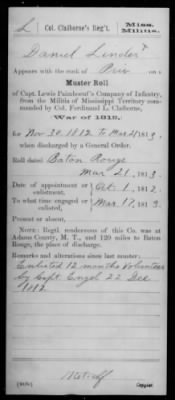 L Col. Claiborne's Reg't. Miss. Militia.
Daniel Linder
Appears with the rank of Priv on a
Muster Roll
of Capt. Lewis Paimboeuf's Company of Infantry,
from the Militia of Mississippi Territory commanded by Col. Ferdinand L. Claiborne,
War of 1812,
for Nov 30, 1812 to Mar 21, 1813,
when discharged by a General Order.
Roll dated Baton Rouge
Mar 21, 1813.
Date of appointment or enlistment, Oct. 1, 1812.
To what time engaged or enlisted, Mar 17, 1813
Present or absent,
NOTE: Regtl rendezvous of this Co. was at
Adams County, M. T., and 120 miles to Baton
Rouge, the place of discharge.
Remarks and alterations since last muster:
Enlisted 12 months Volunteer
by Capt. Engel 22 Dec
1812.
Metcalf
Copyist.